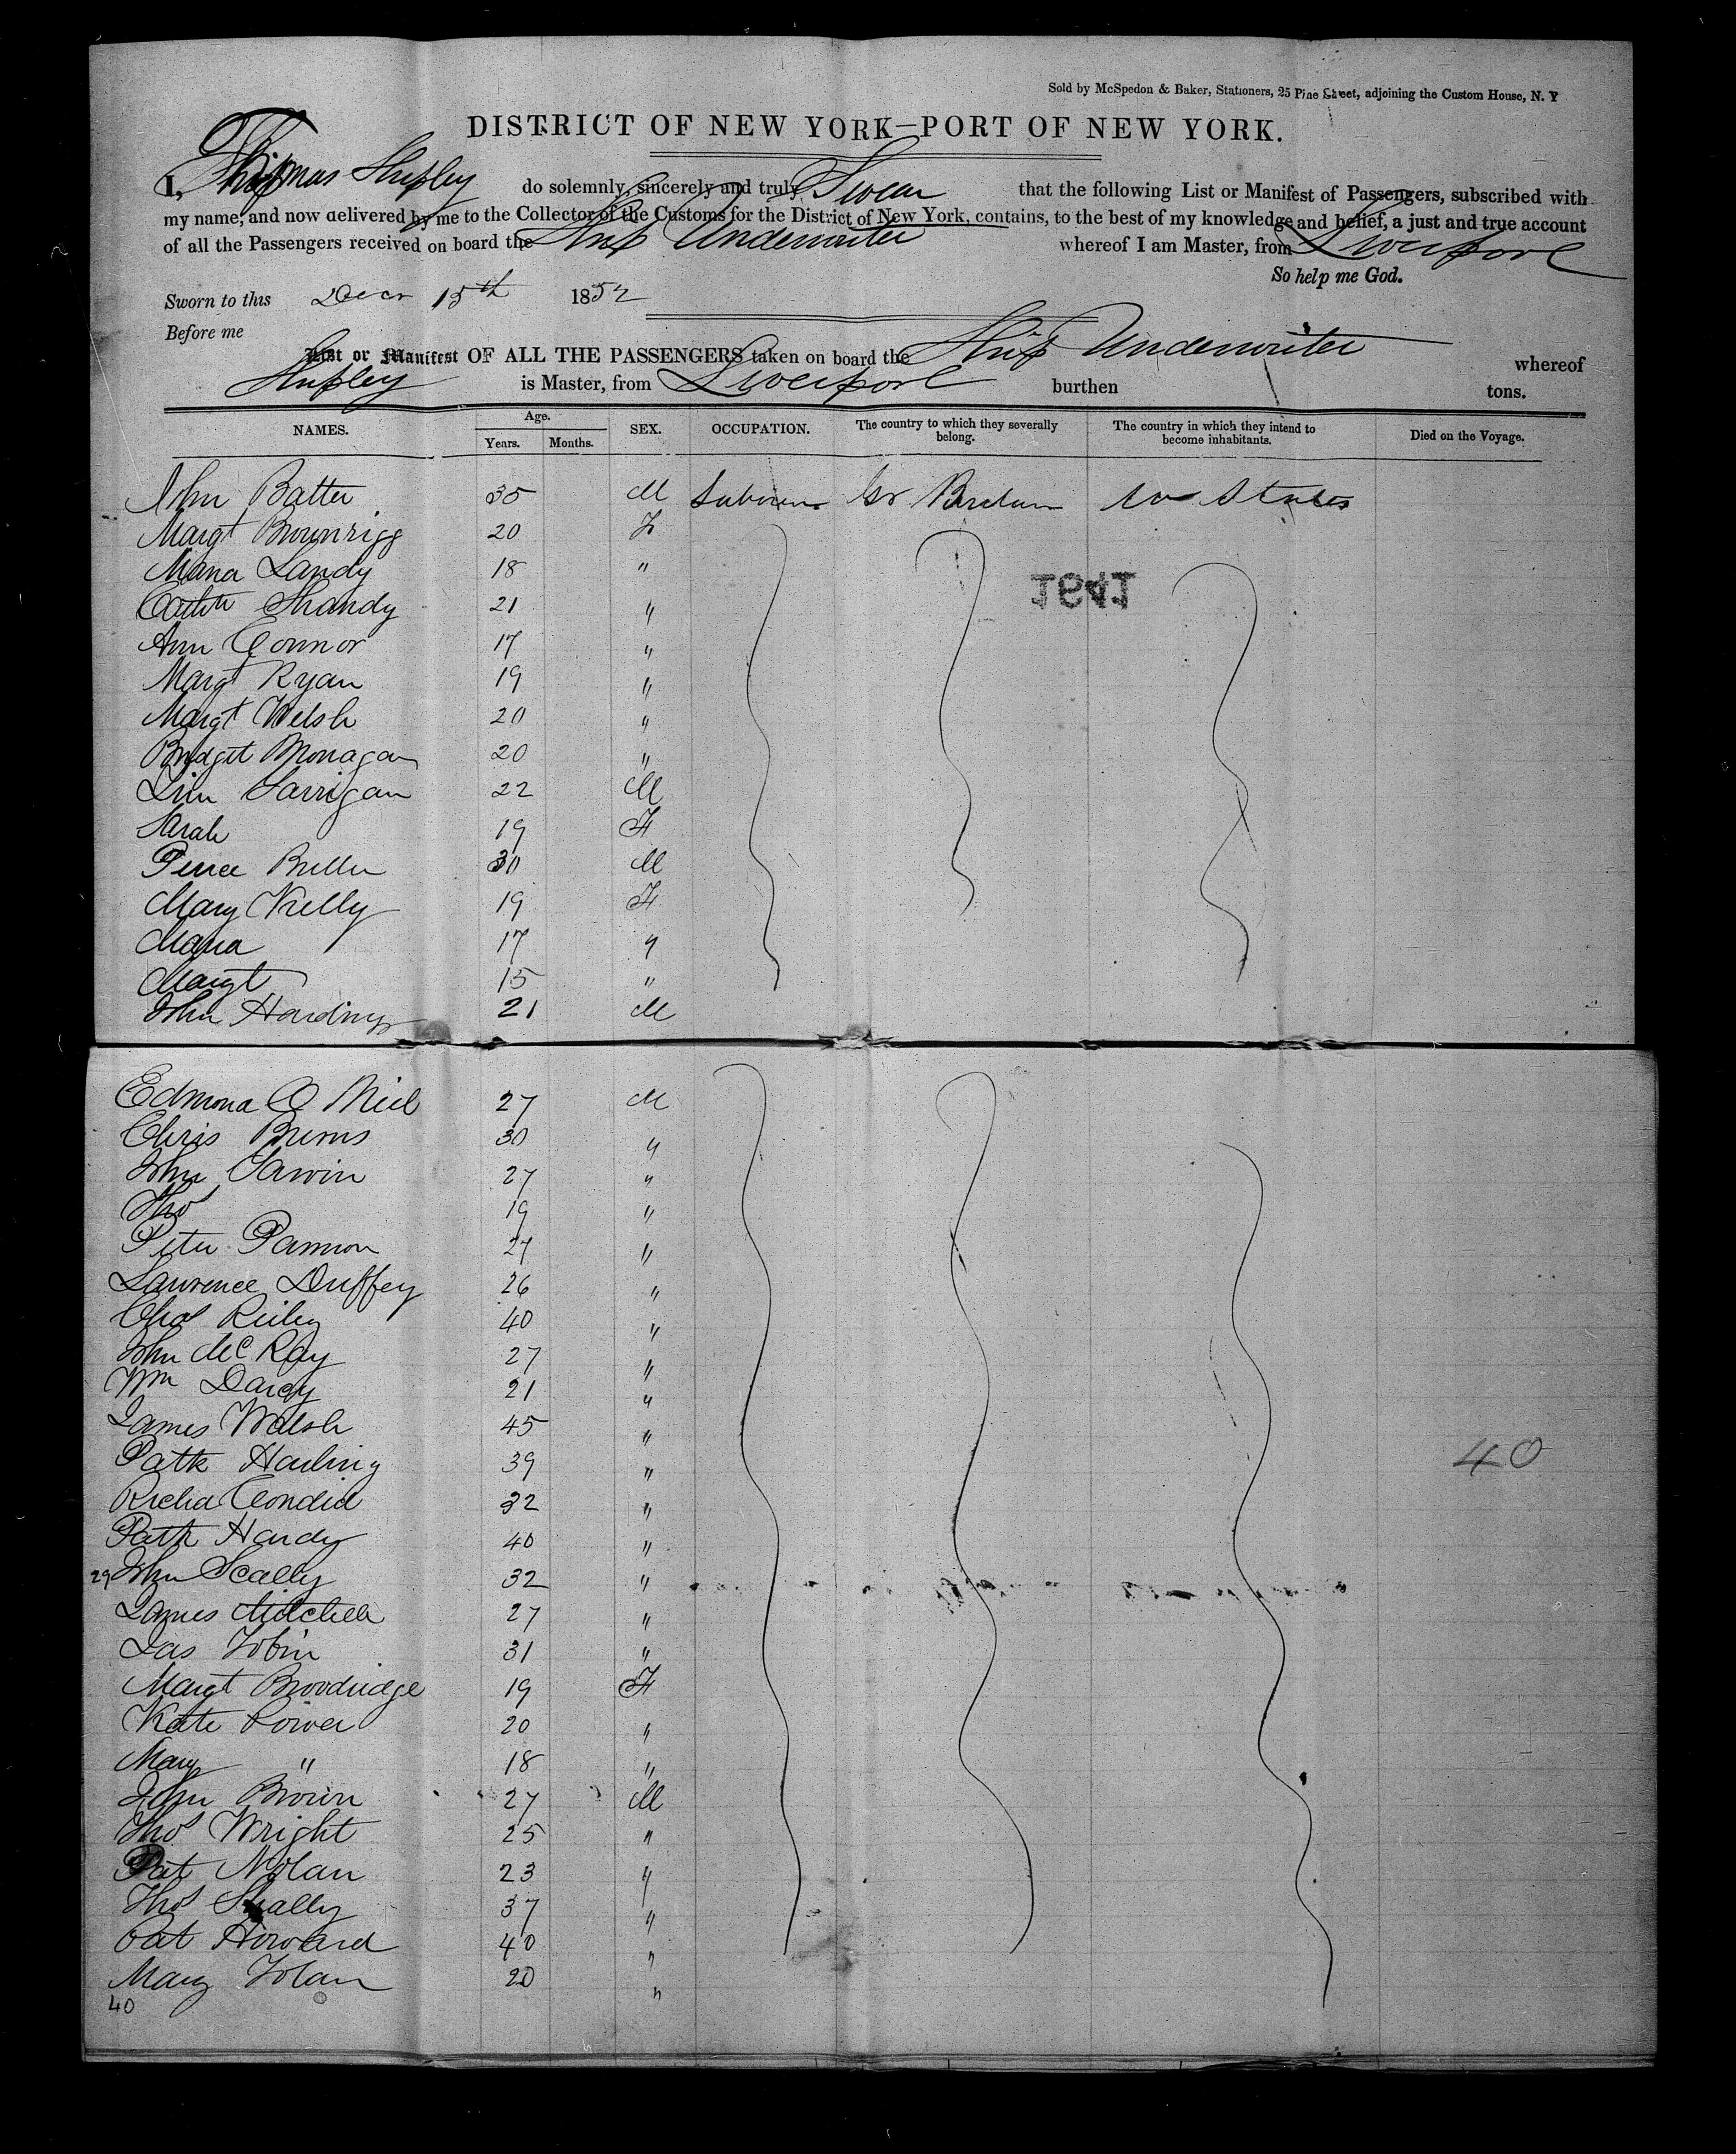 Sold by McSpedon & Baker, Stationers, 25 Pine Street, adjoining the Custom House, N. Y
DISTRICT OF NEW YORK—PORT OF NEW YORK.
I, Thomas Shipley do solemnly, sincerely and truly Swear that the following List or Manifest of Passengers, subscribed with
my name, and now delivered by me to the Collector of the Customs for the District of New York, contains, to the best of my knowledge and belief, a just and true account
of all the Passengers received on board the Ship Underwriter whereof I am Master, from Liverpool
So help me God.
Sworn to this Decr 15th 1852
Before me
List or Manifest OF ALL THE PASSENGERS taken on board the Ship Underwriter whereof
Shipley is Master, from Liverpool burthen tons.
NAMES. Age. Years. Months. SEX. OCCUPATION. The country to which they severally belong. The country in which they intend to become inhabitants. Died on the Voyage.
John Batter 35 M Laborer Gr Britain U States
Margt Brownrigg 20 F
Maria Landy 18 "
Cath Shandy 21 "
Ann Connor 17 "
Margt Ryan 19 "
Margt Welsh 20 "
Bridget Monagan 20 "
Larrigan 22 M
Sarah 19 F
Pierce Butler 30 M
Mary Kelly 19 F
Maria 17 "
Margt 15 "
John Harding 21 M
Edmond O Niel 27 M
Chris Burns 30 "
John Garvin 27 "
Thos 19 "
Peter Pannon 27 "
Lawrence Duffey 26 "
Chas Reiley 40 "
John McRay 27 "
Wm Darcy 21 "
James Walsh 45 "
Patk Harling 39 "
Richd Condid 32 "
Patk Hardy 40 "
29 John Scally 32 "
James Mitchell 27 "
Jas Tobin 31 "
Margt Broodridge 19 F
Kate Power 20 "
Mary " 18 "
John Brown 27 M
Thos Wright 25 "
Pat Nolan 23 "
Thos Skally 37 "
Pat Howard 40 "
Mary Tolan 20 "
40
40